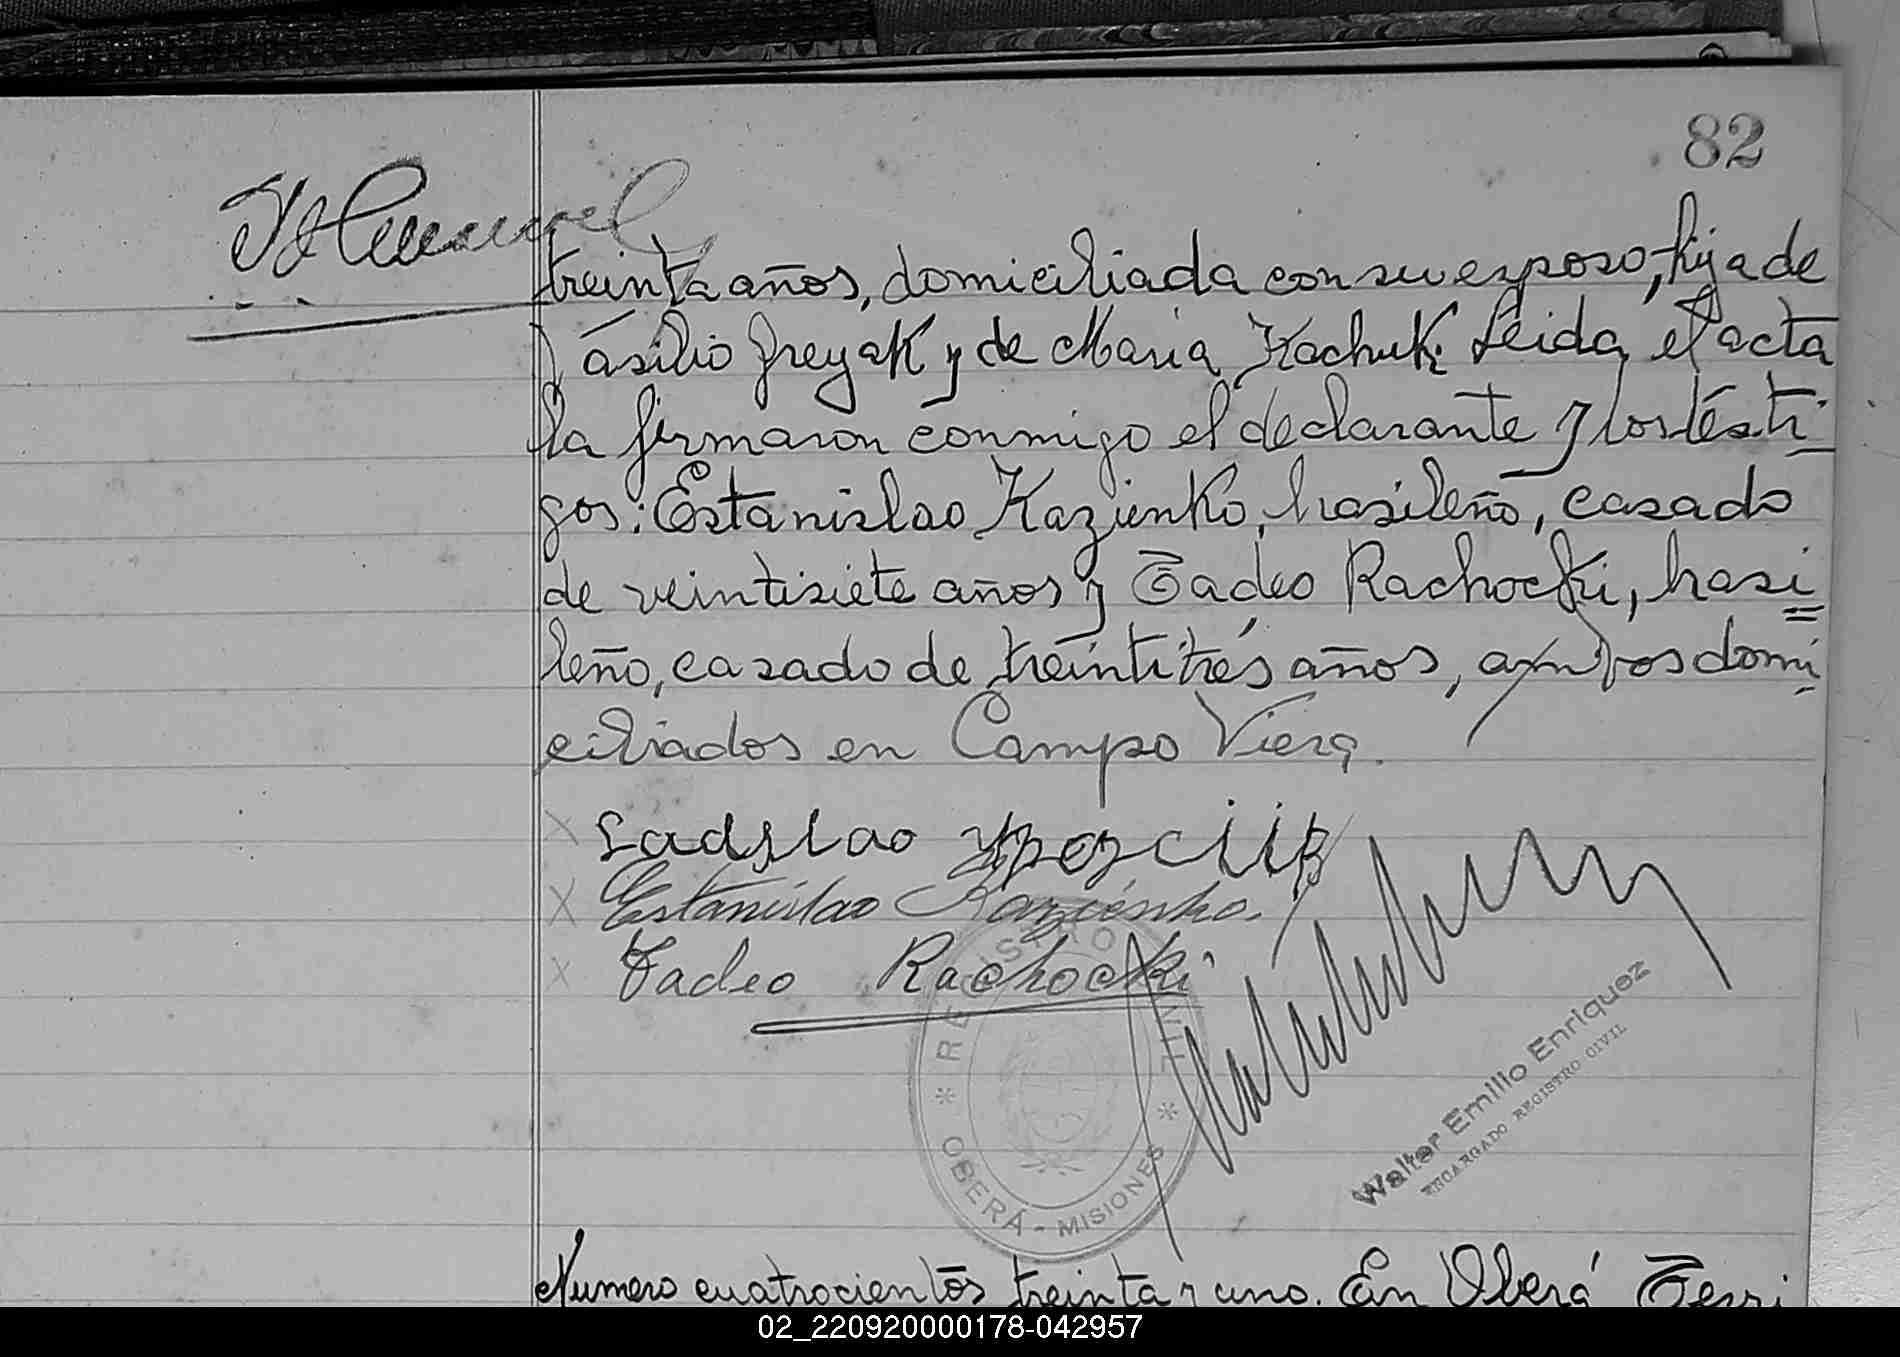 82
treinta años, domiciliada con su esposo, hija de
Vásilio Greyak y de Maria Kachuk. Leida el acta
la firmaron conmigo el declarante y los testi
gos: Estanislao Kazienko, brasileño, casado
de veintisiete años y Tadeo Rachocki, brasi
leño, casado de treintitrés años, ambos domi
ciliados en Campo Viera.
X Ladslao
X Estanislao Kazienko.
X Tadeo Rachocki
REGISTRO CIVIL
* OBERÁ - MISIONES *
Walter Emilio Enriquez
ENCARGADO REGISTRO CIVIL
Numero cuatrocientos treinta y uno. En Oberá Terri
02_220920000178-042957